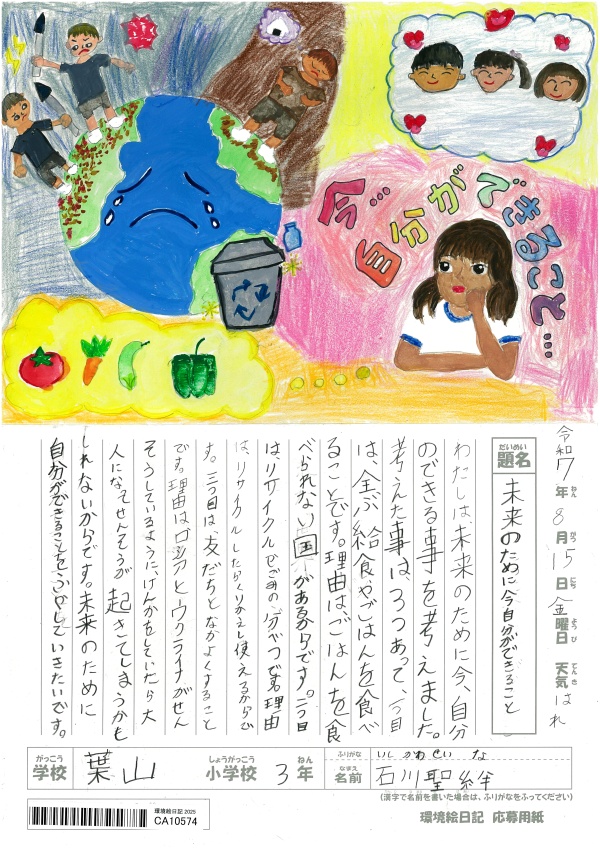 今…自分ができること…
令和7年8月15日金曜日 天気はれ
ねん がつ にち ようび てんき
だいめい
題名
未来のために今自分ができること
わたしは、未来のために今、自分
のできる事を考えました。
考えた事は、3つあって、一つ目
は、全ぶ給食やごはんを食べ
ることです。理由はごはんを食
べられない国があるからです。二つ目
は、リサイクルでごみの分べつです。理由
は、リサイクルしたらくりかえし使えるからで
す。三つ目は友だちとなかよくすること
です。理由はロシアとウクライナがせん
そうしているように、けんかをしていたら大
人になってせんそうが起きてしまうかも
しれないからです。未来のために
自分ができることをふやしていきたいです。
がっこう しょうがっこう ねん ふりがな いしかわせいな
学校 葉山 小学校 3年 なまえ 名前 石川聖絆
(漢字で名前を書いた場合は、ふりがなをふってください)
環境絵日記 2025
CA10574
環境絵日記 応募用紙